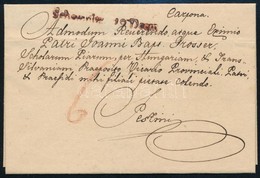 Admodum Reverendo acque Eximio
Patri Joanni Bapt. Prosser,
Scholarum Piarum, per Hungariam, & Trans-
silvaniam Praeposito Vicario Provinciali, Patri,
& Praesidi mihi filiali
colendo.
6
Pestini